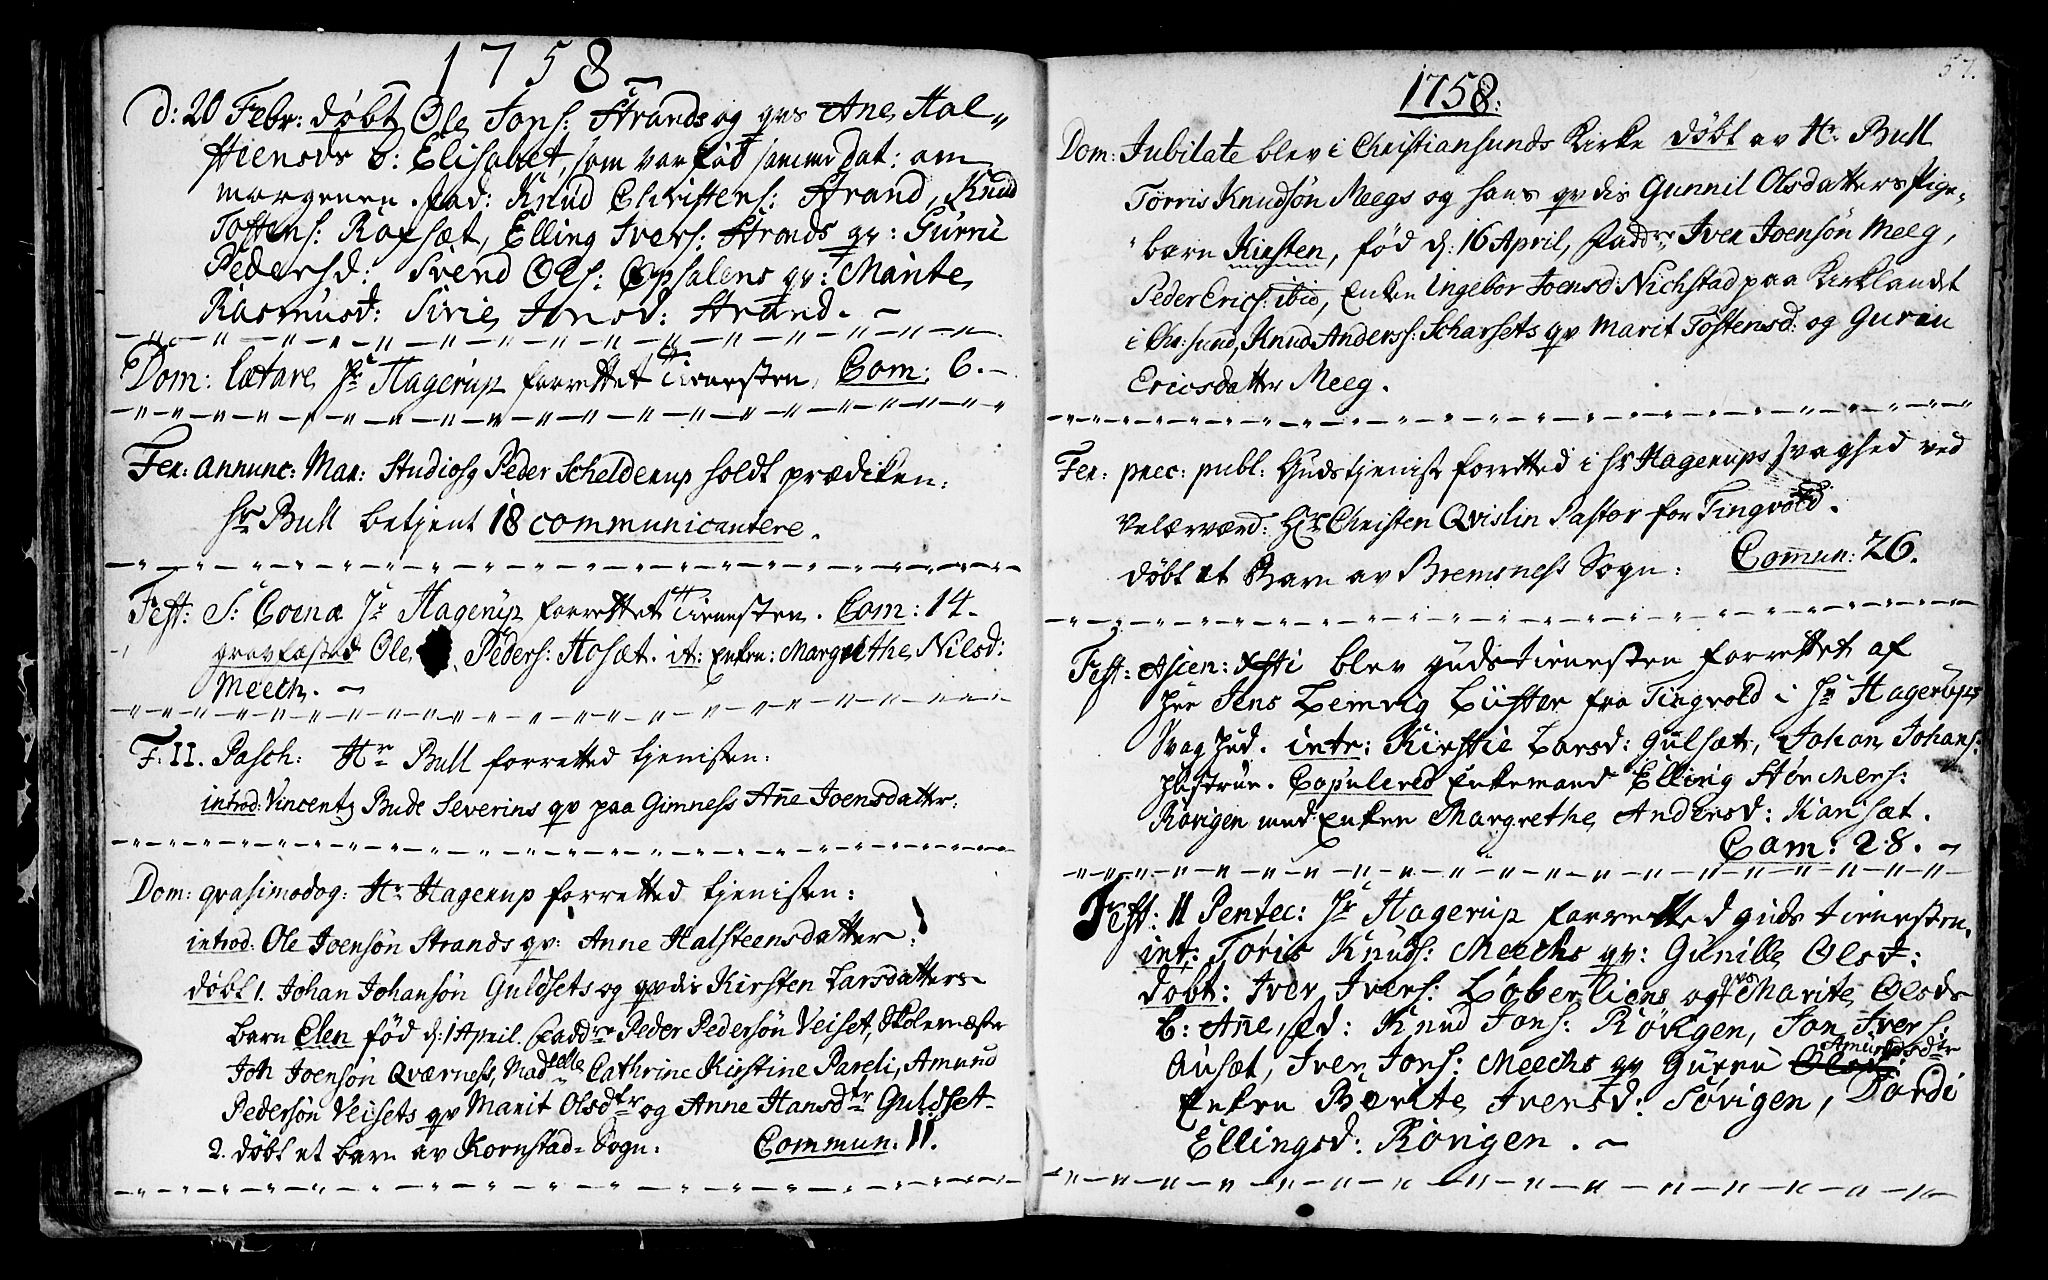 1758
d: 20 Febr: døbt Ole Jons: Strands og qvs Ane Hal-
stiensdr b: Elisabet, som var fød samme dat: om
morgenen. fad: Knud Christens: Strand, Knud
Tostens: Rofsæt, Elling Ivers: Strands qv: Gurru
Pedersd: Svend Ols: Opsalens qv: Mante
Rasmusd: Sirie Jonsd: Strand.
Dom: lætare Hr Hagerup forrettet Tienesten. Com: 6.
Fer: annunc: Mar: Studiosg Peder Schelderup holdt prædiken:
Hr Bull betjent 18 communicantere.
Fest: S: Coenæ Hr Hagerup forrettet Tienesten. Com: 14.
gravfæsted Ole Peders: Hosæt. it: Enken: Margrethe Nilsd:
Meech.
F. II. Pasch: Hr Bull forretted tjenisten:
introd: Vincentz Bude Severins qv paa Gimness Añe Joensdatter:
Dom: qvasimodog: Hr Hagerup forretted tjenisten:
introd: Ole Joensøn Strands qv: Anne Halsteensdatter:
døbt 1. Johan Johansøn Guldsets og qvdis Kirsten Larsdatters
barn Elen fød d: 1 April. Faddre Peder Pedersøn Veiset, Skolemæstr
Joh Joensøn Qværness, Madselle Cathrine Kirstine Pareli, Amund
Pedersøn Veisets qv Marit Olsdtr og Anne Hansdtr Guldset
2. døbt et barn av Kornstad-Sogn: Commun: 11.
57.
1758:
Dom: Jubilate blev i Christiansunds Kirke døbt av Hr Bull
Tørris Knudsøn Meegs og hans qvdis Gunnil Olsdatters pige-
barn Kirsten, fød d: 16 April, Faddre Iver Joensøn Meeg,
Peder Erics: ibid, Enken Ingebor Joensd: Nichstad paa Kirklandet
i Chr:sund, Knud Anderss: Scharsets qv Marit Tostensd: og Guru
Ericsdatter Meeg.
Fer: prec: publ: Gudstjenist forretted i Hr Hagerups svaghed ved
Velærværd: Hr Christen Qvislin Pastor for Tingvold.
døbt et Barn av Bremsness Sogn: Commun: 26.
Fest: Ascen: Xsti blev gudstienesten forrettet af
Her Jens Lemvig Lüster fra Tingvold i Hr Hagerups
Svaghed. intr: Kirstie Larsd: Gulsæt, Johan Johans:
hustrue. Copulered Enkemand Elling Størchers:
Rörigen med Enken Margrethe Andersd: Karisæt.
Com: 28.
Fest: II Pentec: Hr Hagerup forretted guds tienesten.
int: Toris Knuds: Meechs qv: Gunille Olsd:
døbt: Iver Ivers: Løberliens og qvs Marite Olsdr
b: Añe, fd: Knud Jons: Rövigen, Jon Ivers:
Ausæt, Iver Jons: Meechs qv Gurru Amundsdtr
Enken Berite Iversd: Sörigen, Dordi
Ellingsd: Rörigen.